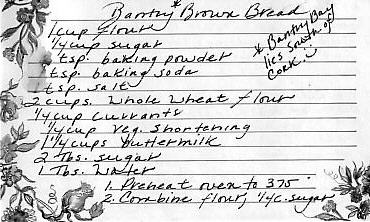 Bantry* Brown Bread
1 cup flour
1/4 cup sugar
tsp. baking powder
tsp. baking soda
tsp. salt
2 cups whole wheat flour
1/4 cup currants
1/4 cup veg. shortening
1 1/4 cups buttermilk
2 Tbs. sugar
1 Tbs. water
1. Preheat oven to 375°
2. Combine flour, 1/4 c. sugar
* Bantry Bay
lies south of
Cork. :)